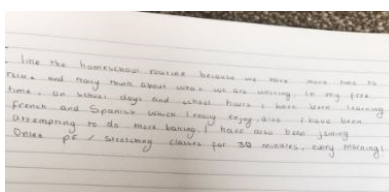 I like the homeschool routine because we have more time to
relax and really think about what we are writing. In my free
time, on school days and school hours I have been learning
french and Spanish which I really enjoy, also I have been
attempting to do more baking. I have also been joining
Online PE / stretching classes for 30 minutes, every morning!